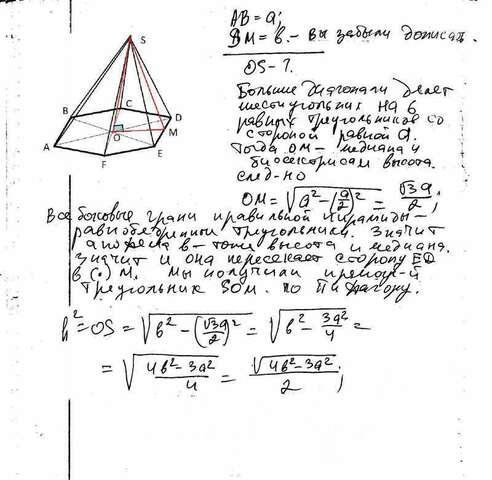 S
B
C
D
A
O
M
F
E
AB = a;
SM = в. – вы забыли дописат.
OS – ?.
Большие диагонали делят
шестиугольник на 6
равных треугольников со
стороной равной a.
Тогда OM – медиана и
биссектриса и высота.
след-но
OM = √(a² – (a/2)²) = √3a/2;
Все боковые грани правильной пирамиды –
равнобедренные треугольники. Значит
апофема в – тоже высота и медиана.
Значит и она пересекает сторону ED
в (·) M. Мы получили прямоуг-й
треугольник SOM. по Пифагору.
h² = OS = √(в² – (√3a/2)²) = √(в² – 3a²/4) =
= √((4в² – 3a²)/4) = √(4в² – 3a²)/2;